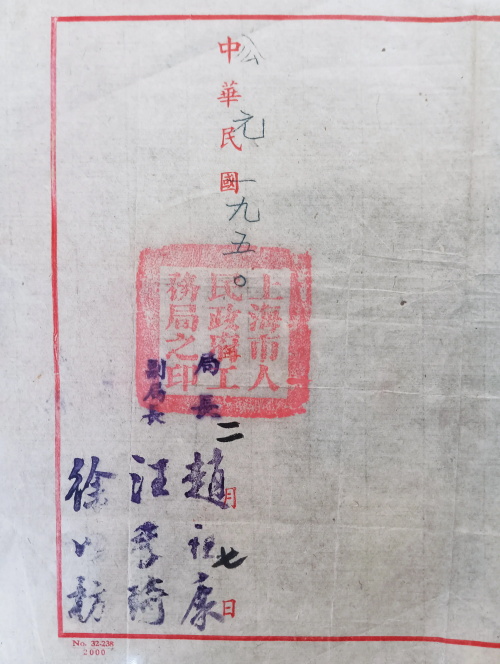 公元一九五〇
中華民國二月七日
上海市人
民政府工
務局之印
局長 趙祖康
副局長 汪季琦
徐以枋
No. 32-238
2000